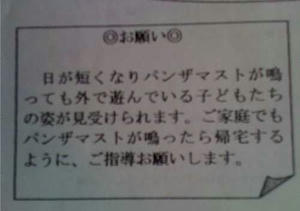 ◎お願い◎
日が短くなりパンザマストが鳴
っても外で遊んでいる子どもたち
の姿が見受けられます。ご家庭でも
パンザマストが鳴ったら帰宅する
ように、ご指導お願いします。